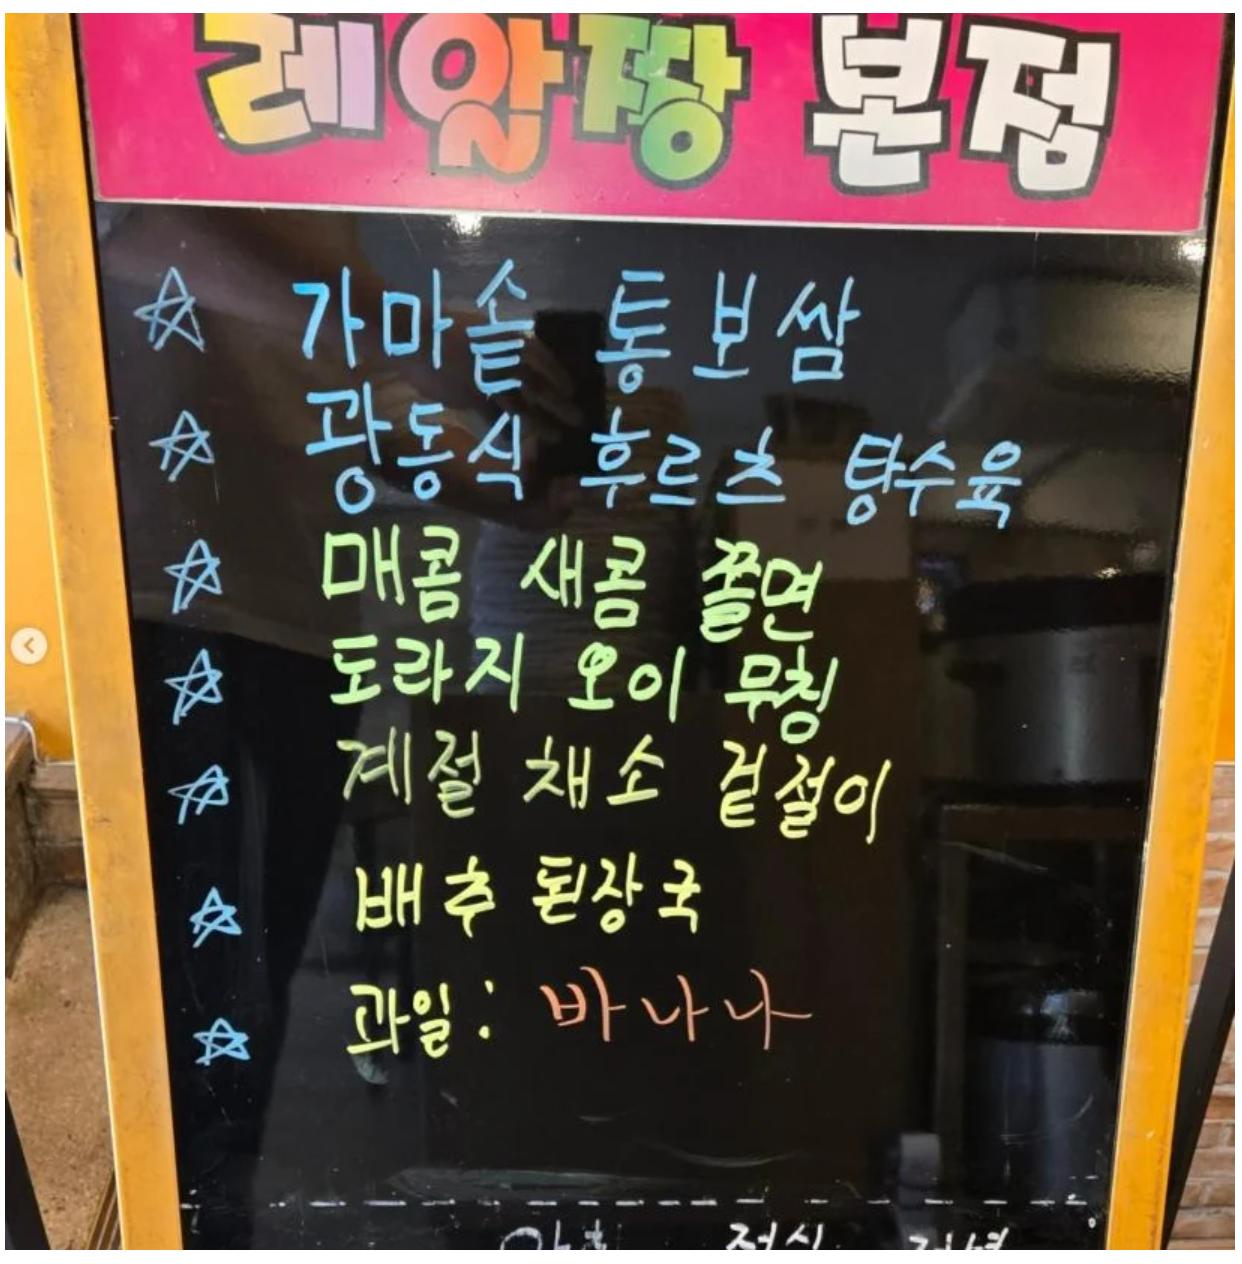 레알짱 본점
가마솥 통보쌈
광동식 후르츠 탕수육
매콤 새콤 쫄면
도라지 오이 무침
계절 채소 겉절이
배추 된장국
과일: 바나나
점심